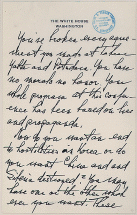 THE WHITE HOUSE
WASHINGTON
You've broken every agree-
ment you made at Yalta
and Potsdam. You have
no morals no honor. Your
whole program at this conf
ence has been based on lies
and propaganda.
Now do you want an end
to hostilities in Korea or do
you want China and
Siberia destroyed? You may
have one or the other which
ever you want. These